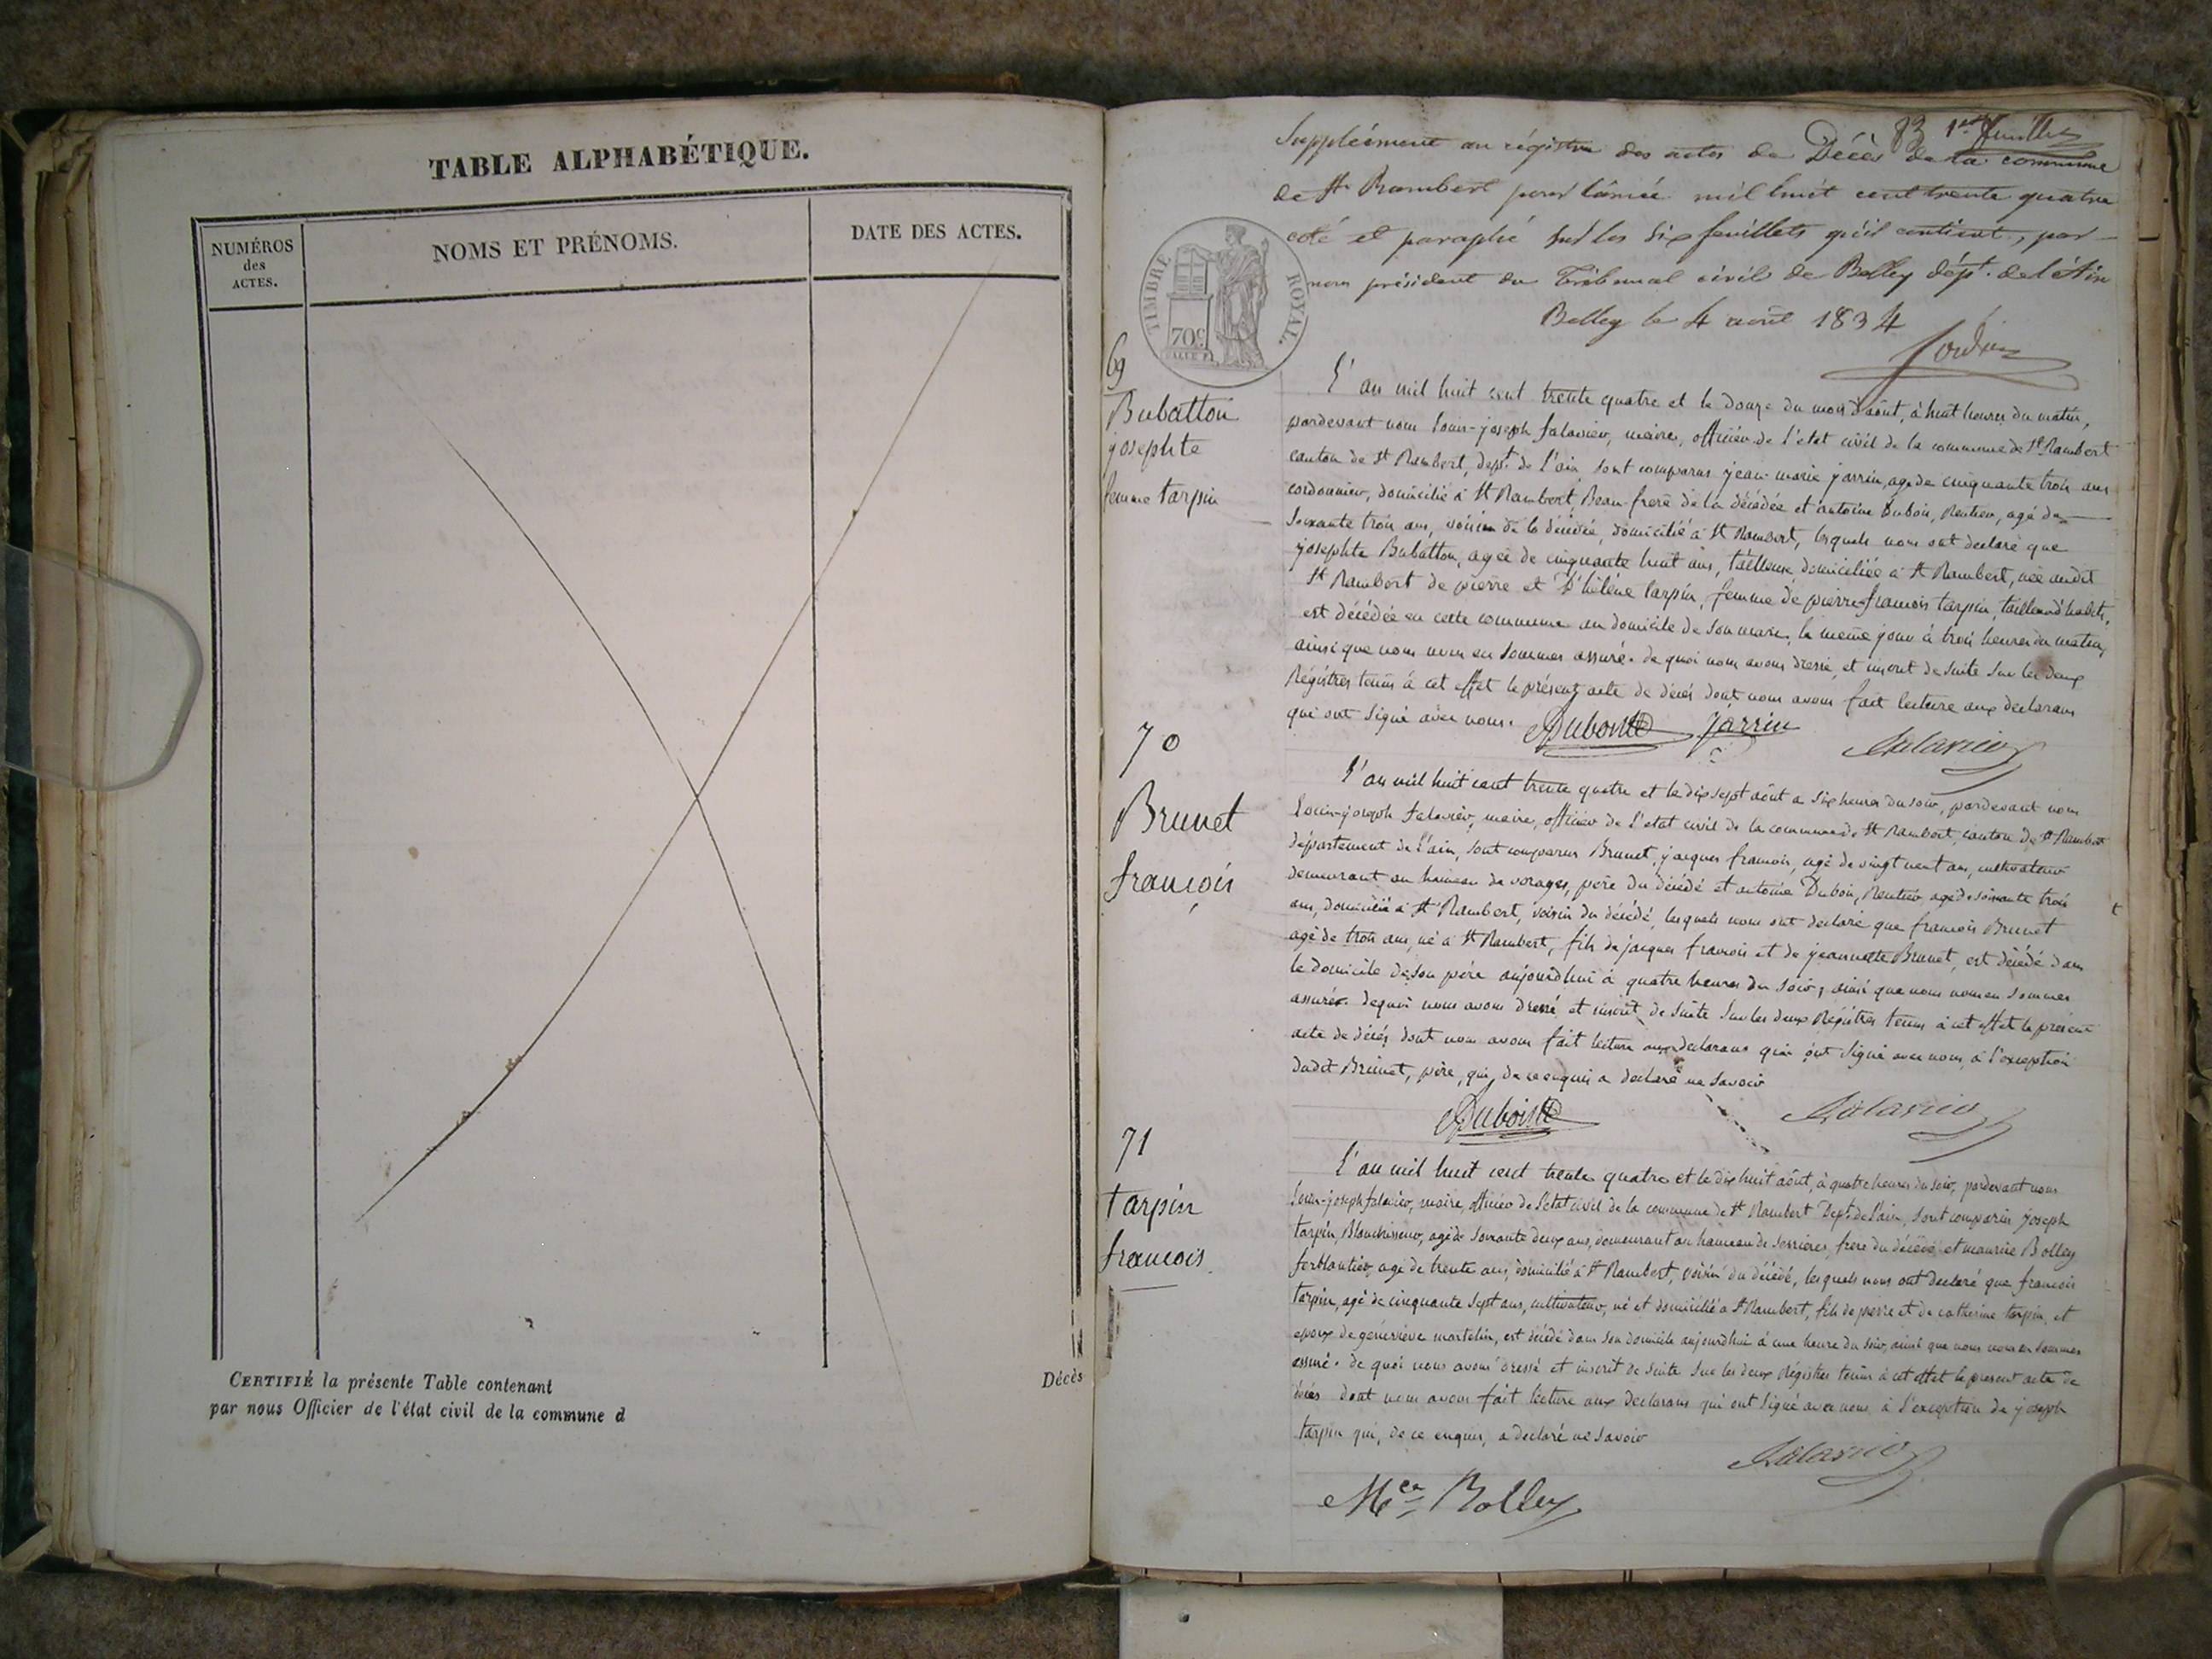 TABLE ALPHABÉTIQUE.
NUMÉROS
des
ACTES.
NOMS ET PRÉNOMS.
DATE DES ACTES.
CERTIFIÉ la présente Table contenant
par nous Officier de l'état civil de la commune d
Décès
83 1er feuillet
Supplément au régistre des actes de Décès de la commune
de St Rambert pour l'année mil huit cent trente quatre
coté et paraphé sur les six feuillets qu'il contient, par
nous président du Tribunal civil de Belley dépt. de l'Ain
Belley le 4 août 1834
TIMBRE ROYAL.
70c
69
Bubatton
josephte
femme tarpin
L'an mil huit cent trente quatre et le douze du mois d'août, à huit heures du matin,
pardevant nous Louis-joseph falavier, maire, officier de l'etat civil de la commune de St Rambert
canton de St Rambert, dept. de l'ain sont comparus jean marie jarrin, agé de cinquante trois ans
cordonnier, domicilié à St Rambert, Beau-frere de la décédée et antoine Dubois, Rentier, agé de
soixante trois ans, voisin de la décédée, domicilié à St Rambert, lesquels nous ont declaré que
josephte Bubatton, agée de cinquante huit ans, tailleuse, domiciliée à St Rambert, née audit
St Rambert de pierre et d'hélène tarpin, femme de pierre-francois tarpin, tailleur d'habits,
est décédée en cette commune au domicile de son mari, le meme jour à trois heures du matin,
ainsi que nous nous en sommes assuré. de quoi nous avons dressé et inscrit de suite sur les deux
Régistres tenus à cet effet le présent acte de décès dont nous avons fait lecture aux declarans
qui ont signé avec nous. Dubois Jarrin
70
Brunet
françois
L'an mil huit cent trente quatre et le dix sept août a six heures du soir, pardevant nous
Louis-joseph falavier, maire, officier de l'etat civil de la commune de St Rambert, canton de St Rambert
département de l'ain, sont comparus Brunet, jacques francois, agé de vingt neuf ans, cultivateur
demeurant au hameau de vorages, père du décédé et antoine Dubois, Rentier, agé de soixante trois
ans, domicilié à St Rambert, voisin du décédé, lesquels nous ont declaré que francois Brunet
agé de trois ans, né à St Rambert, fils de jacques francois et de jeannette Brunet, est décédé dans
le domicile de son père aujourd'hui à quatre heures du soir, ainsi que nous nous en sommes
assurés. de quoi nous avons dressé et inscrit de suite sur les deux Régistres tenus à cet effet le présent
acte de décès dont nous avons fait lecture aux declarans qui ont signé avec nous, à l'exception
dudit Brunet, père, qui, de ce enquis a declaré ne savoir
Dubois
71
tarpin
francois
L'an mil huit cent trente quatre et le dix huit août, à quatre heures du soir, pardevant nous
Louis-joseph falavier, maire, officier de l'etat civil de la commune de St Rambert Dept. de l'ain, sont comparus joseph
tarpin, Blanchisseur, agé de soixante deux ans, demeurant au hameau de serrières, frere du décédé et maurice Bolley
ferblantier, agé de trente ans, domicilié à St Rambert, voisin du décédé, lesquels nous ont declaré que francois
tarpin, agé de cinquante sept ans, cultivateur, né et domicilié a St Rambert, fils de pierre et de catherine tarpin, et
epoux de geneviève martelin, est décédé dans son domicile aujourd'hui à une heure du soir, ainsi que nous nous en sommes
assuré. de quoi nous avons dressé et inscrit de suite sur les deux Régistres tenus à cet effet le present acte de
décès dont nous avons fait lecture aux declarans qui ont signé avec nous à l'exception de joseph
tarpin qui, de ce enquis, a declaré ne savoir
Mce Bolley